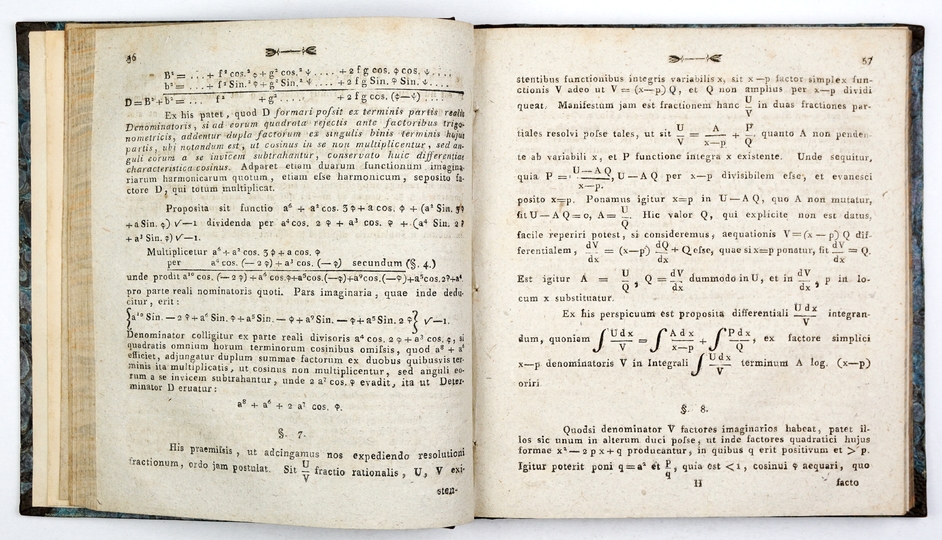 56
B² = ... + f² cos.² φ + g² cos.² ψ .... + 2 f g cos. φ cos. ψ ....
b² = ... + f² Sin.² φ + g² Sin.² ψ .... + 2 f g Sin. φ Sin. ψ ....
D = B² + b² = ... f² + g² .... + 2 f g cos. (φ—ψ) ....
Ex his patet, quod D formari poſsit ex terminis partis realis
Denominatoris, si ad eorum quadrata rejectis ante factoribus trigo-
nometricis, addentur dupla factorum ex singulis binis terminis hujus
partis, ubi notandum est, ut cosinus in se non multiplicentur, sed an-
guli eorum a se invicem subtrahantur, conservato huic differentiae
characteristica cosinus. Adparet etiam duarum functionum imagina-
riarum harmonicarum quotum, etiam eſse harmonicum, seposito fa-
ctore D, qui totum multiplicat.
Proposita sit functio a⁶ + a² cos. 3 φ + a cos. φ + (a² Sin. 3φ
+ a Sin. φ) √—1 dividenda per a⁴ cos. 2 φ + a³ cos. φ + (a⁴ Sin. 2 φ
+ a³ Sin. φ) √—1.
Multiplicetur a⁶ + a² cos. 3 φ + a cos. φ
per a⁴ cos. (— 2 φ) + a³ cos. (—φ) secundum (§. 4.)
unde prodit a¹⁰ cos. (— 2 φ) + a⁶ cos. φ + a⁵ cos. (—φ) + a⁹ cos. (—φ) + a⁵ cos. 2φ + a⁴
pro parte reali nominatoris quoti. Pars imaginaria, quae inde dedu-
citur, erit:
{a¹⁰ Sin. — 2 φ + a⁶ Sin. φ + a⁵ Sin. — φ + a⁹ Sin. — φ + a⁵ Sin. 2 φ} √—1.
Denominator colligitur ex parte reali divisoris a⁴ cos. 2 φ + a³ cos. φ, si
quadratis omnium horum terminorum cosinibus omiſsis, quod a⁸ + a⁶
efficiet, adjungatur duplum summae factorum ex duobus quibusvis ter-
minis ita multiplicatis, ut cosinus non multiplicentur, sed anguli eo-
rum a se invicem subtrahantur, unde 2 a⁷ cos. φ evadit, ita ut Deter-
minator D eruatur:
a⁸ + a⁶ + 2 a⁷ cos. φ.
§. 7.
His praemiſsis, ut adcingamus nos expediendo resolutioni
fractionum, ordo jam postulat. Sit U/V fractio rationalis, U, V exi-
sten-
57
stentibus functionibus integris variabilis x, sit x—p factor simplex fun-
ctionis V adeo ut V = (x—p) Q, et Q non amplius per x—p dividi
queat. Manifestum jam est fractionem hanc U/V in duas fractiones par-
tiales resolvi poſse tales, ut sit U/V = A/x—p + P/Q, quanto A non penden-
te ab variabili x, et P functione integra x existente. Unde sequitur,
quia P = U—AQ/x—p, U—AQ per x—p divisibilem eſse, et evanesci
posito x=p. Ponamus igitur x=p in U—AQ, quo A non mutatur,
fit U—AQ=0, A = U/Q. Hic valor Q, qui explicite non est datus,
facile reperiri potest, si consideremus, aequationis V=(x—p) Q dif-
ferentialem, dV/dx = (x—p) dQ/dx + Q eſse, quae si x=p ponatur, fit dV/dx = Q.
Est igitur A = U/Q, Q = dV/dx dummodo in U, et in dV/dx, p in lo-
cum x substituatur.
Ex his perspicuum est proposita differentiali Udx/V integran-
dum, quoniam ∫ Udx/V = ∫ Adx/x—p + ∫ Pdx/Q, ex factore simplici
x—p denominatoris V in Integrali ∫ Udx/V terminum A log. (x—p)
oriri
§. 8.
Quodsi denominator V factores imaginarios habeat, patet il-
los sic unum in alterum duci poſse, ut inde factores quadratici hujus
formae x² — 2 p x + q producantur, in quibus q erit positivum et > p.
Igitur poterit poni q = a² et p/q, quia est < 1, cosinui φ aequari, quo
H facto